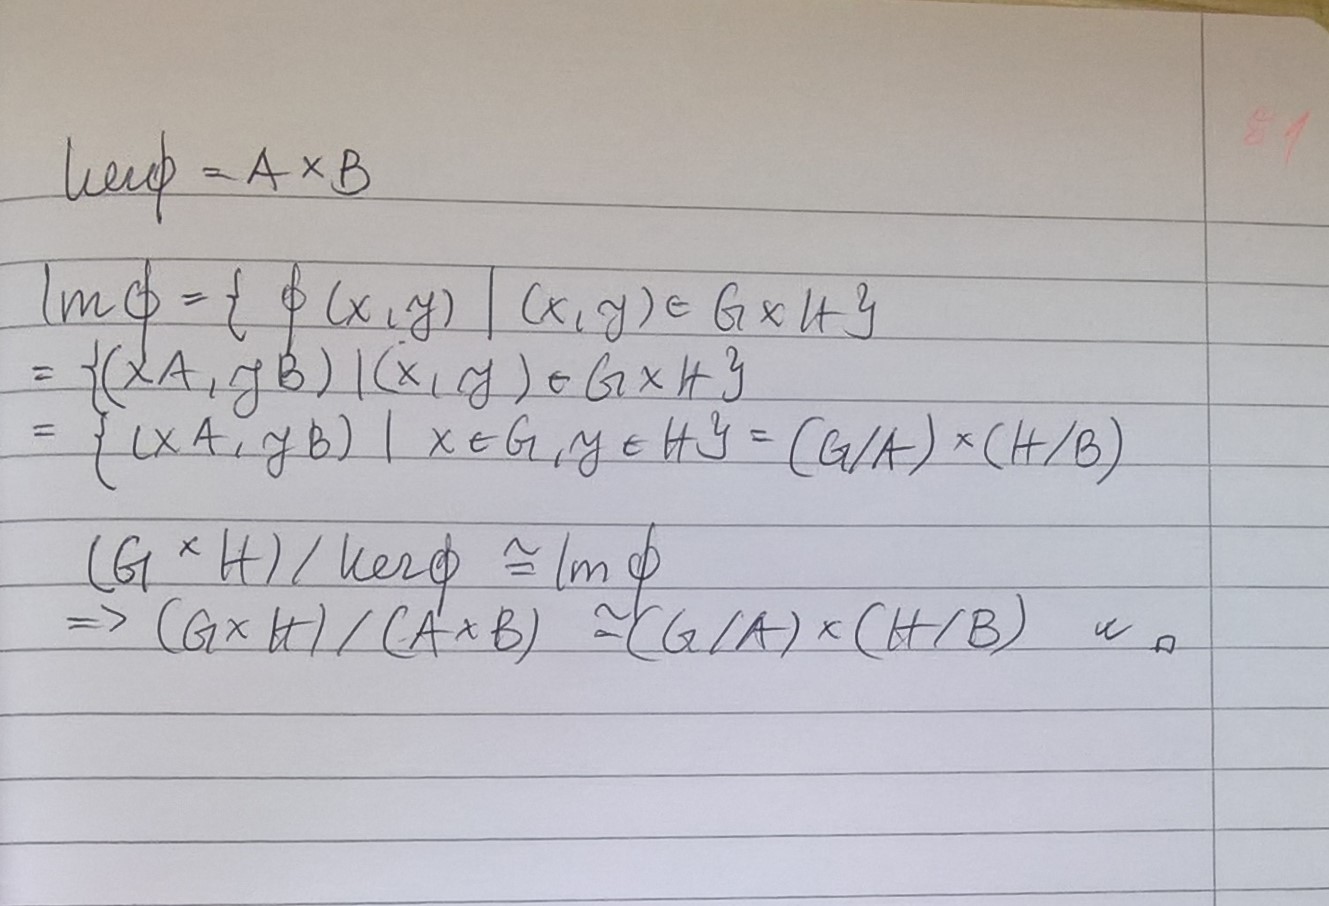 kerϕ = A × B
Im ϕ = { ϕ (x, y) | (x, y) ∈ G × H }
= {(xA, yB) | (x, y) ∈ G × H }
= { (xA, yB) | x ∈ G, y ∈ H } = (G/A) × (H/B)
(G × H) / kerϕ ≅ Im ϕ
=> (G × H) / (A × B) ≅ (G/A) × (H/B)